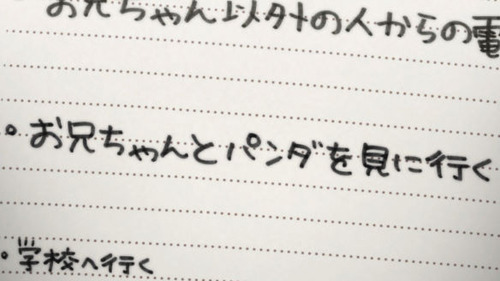 お兄ちゃん以外の人からの電
・お兄ちゃんとパンダを見に行く
・学校へ行く